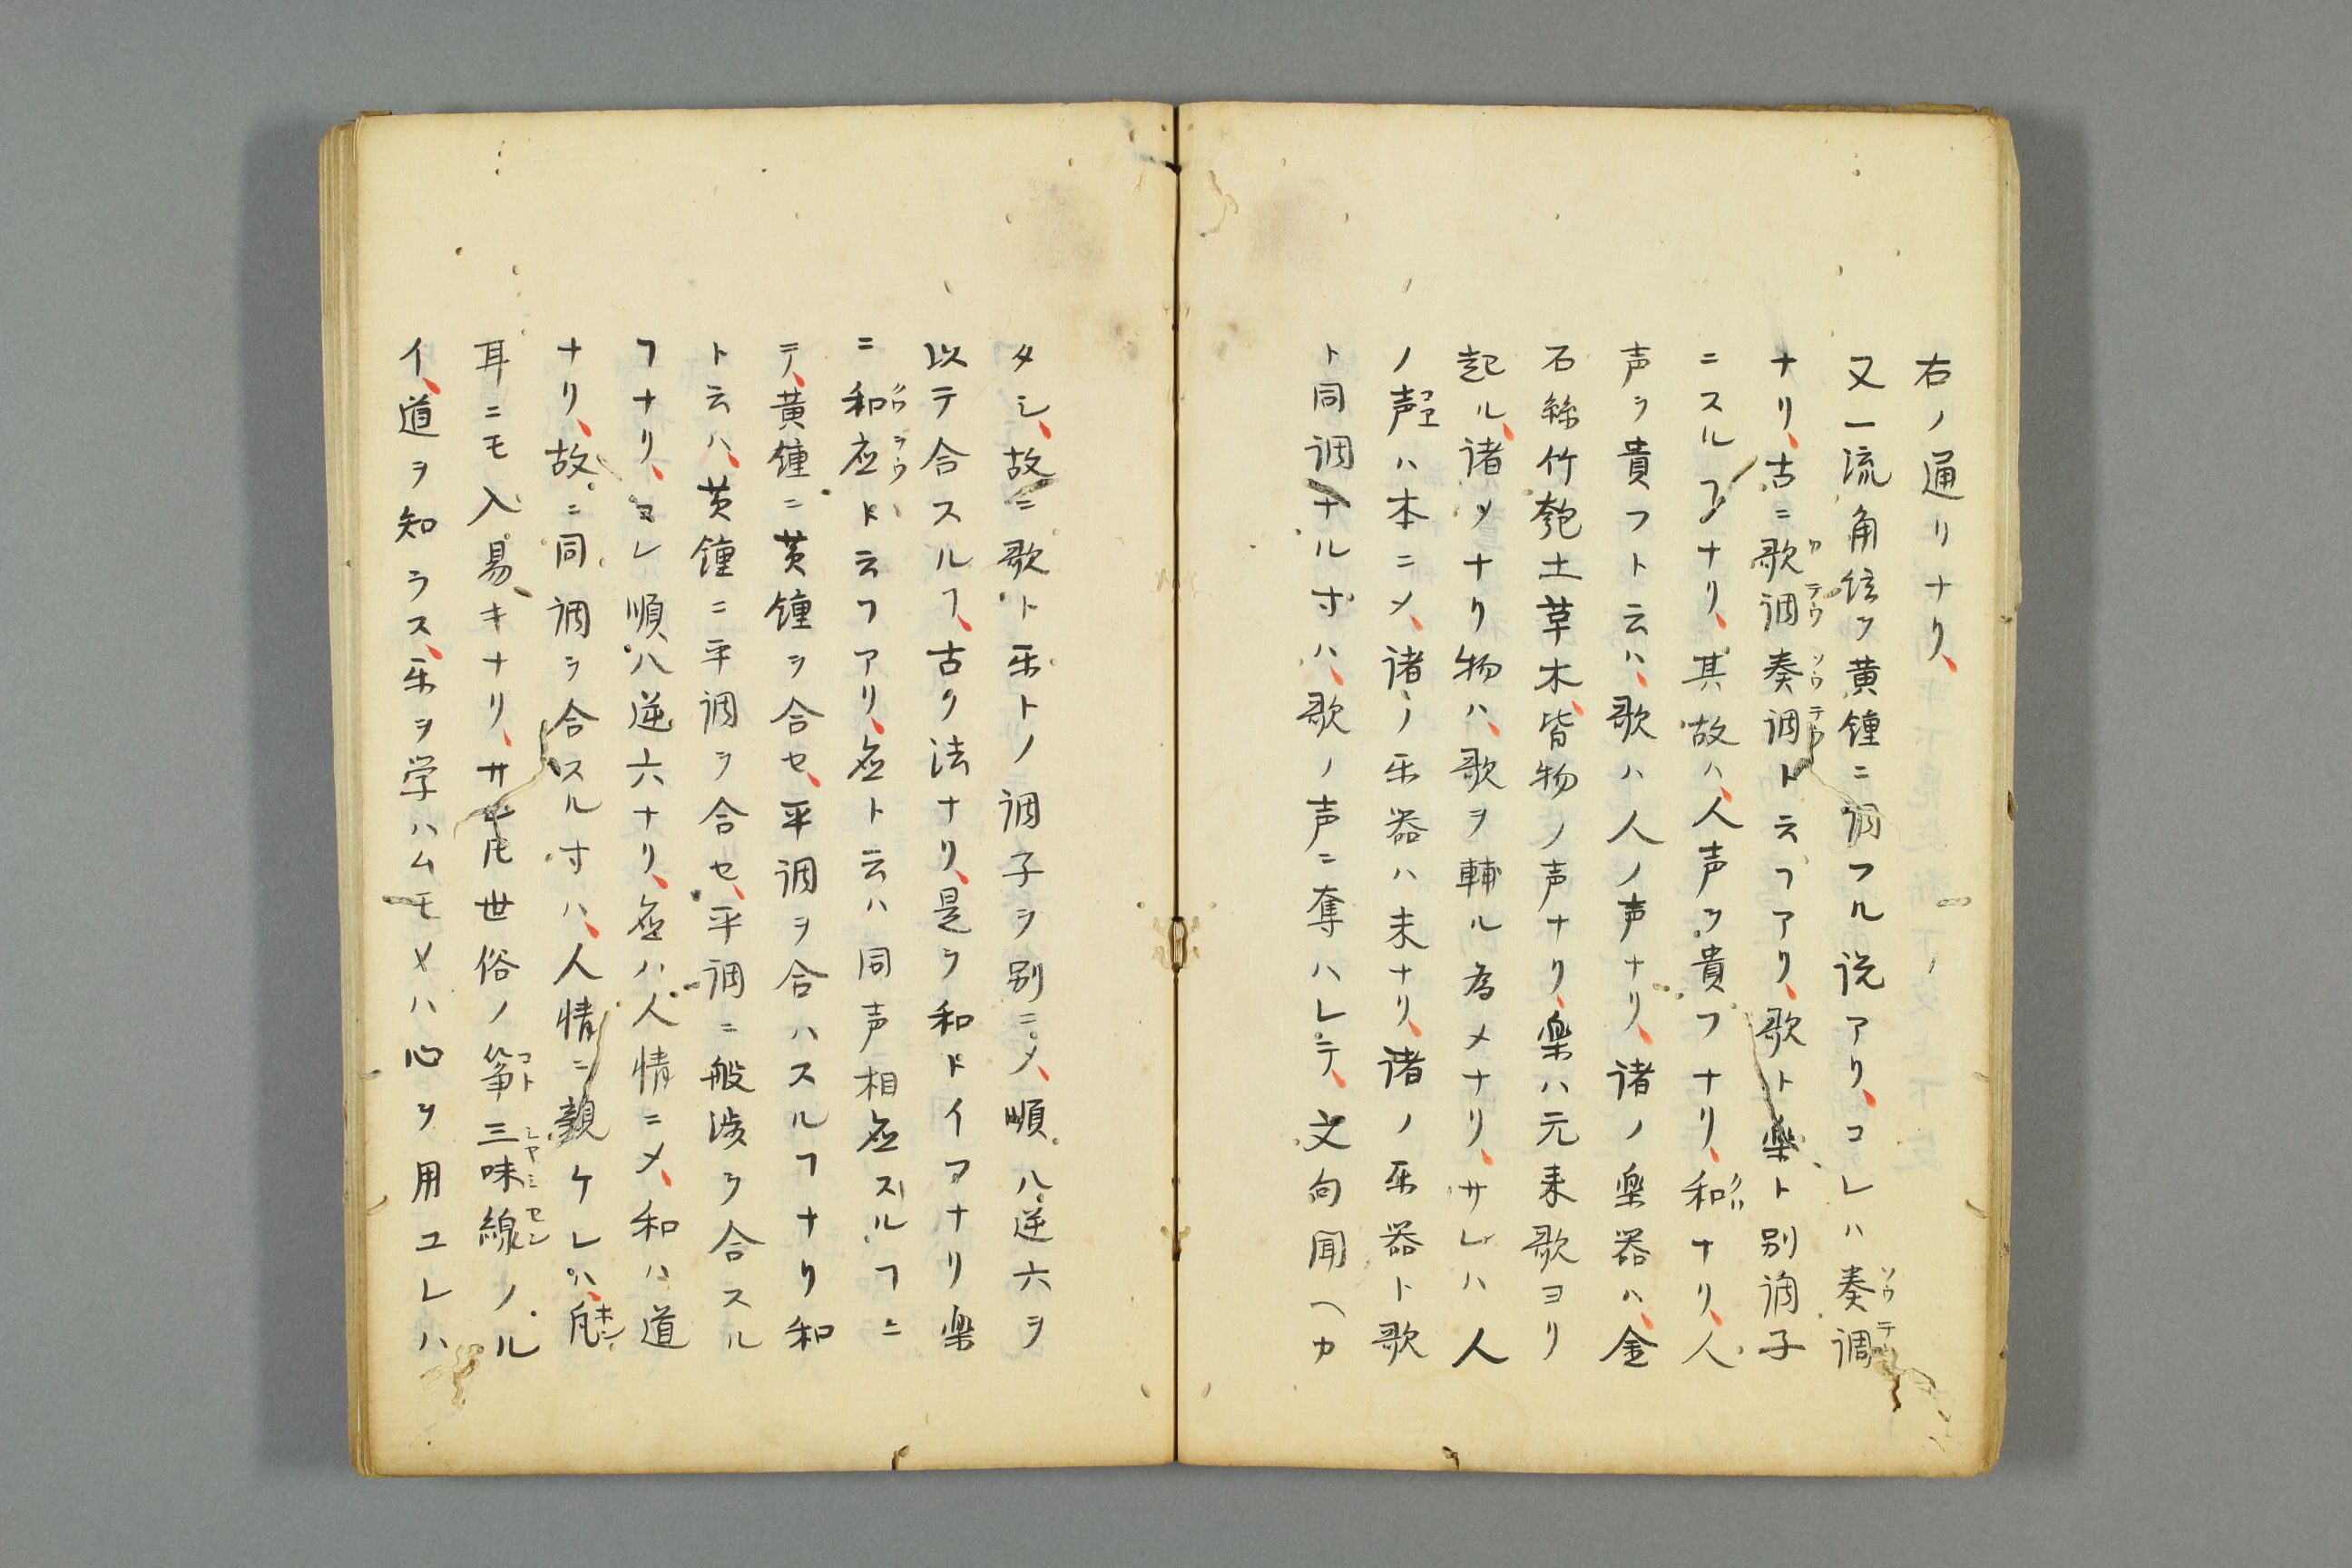 右ノ通リナリ、
又一流角絃ヲ黄鐘ニ調フル説アリ、コレハ奏調
ナリ、古ニ歌調奏調ト云ヿアリ、歌ト楽ト別調子
ニスルヿナリ、其故ハ、人声ヲ貴フナリ、和ナリ、人
声ヲ貴フト云ハ、歌ハ人ノ声ナリ、諸ノ楽器ハ、金
石絲竹匏土草木、皆物ノ声ナリ、楽ハ元来歌ヨリ
起ル、諸ノナリ物ハ、歌ヲ輔ル為メナリ、サレハ人
ノ声ハ本ニメ、諸ノ乐器ハ末ナリ、諸ノ乐器ト歌
ト同調ナル寸ハ、歌ノ声ニ奪ハレテ、文句聞ヘカ
タシ、故ニ歌ト乐トノ調子ヲ別ニメ、順八逆六ヲ
以テ合スルヿ、古ク法ナリ、是ヲ和ドイフナリ楽
ニ和应ド云ヿアリ、应ト云ハ同声相应スルヿニ
テ、黄鐘ニ黄鐘ヲ合セ、平調ヲ合ハスルヿナリ和
ト云ハ、黄鐘ニ平調ヲ合セ、平調ニ般渉ヲ合スル
ヿナリ、ヨレ順八逆六ナリ、应ハ人情ニメ、和ハ道
ナリ、故ニ同調ヲ合スル寸ハ、人情ニ親ケレハ、凡
耳ニモ入易キナリ、サレ𪜈世俗ノ箏三味線ノル
イ、道ヲ知ラス、乐ヲ学ハムモメハ心ヲ用ユレハ